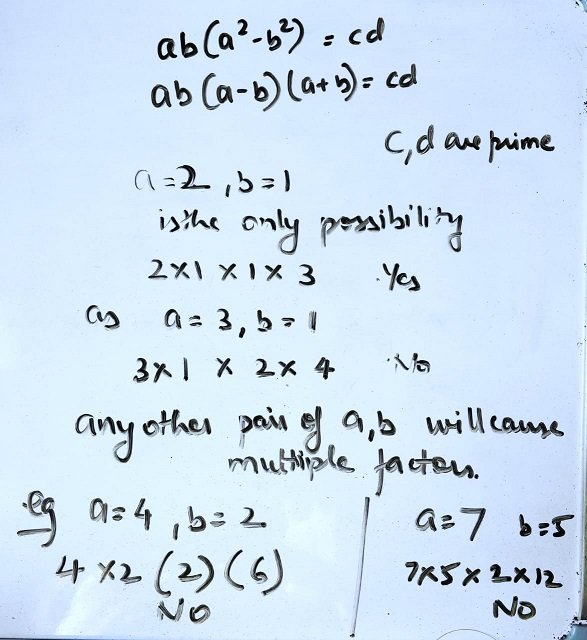 ab(a²-b²) = cd
ab(a-b)(a+b)= cd
c,d are prime
a=2, b=1
is the only possibility
2×1 ×1× 3 Yes
as a=3, b=1
3×1 × 2× 4 No
any other pair of a,b will cause
multiple factors.
eg a=4, b=2
4 ×2 (2)(6)
NO
a=7 b=5
7×5×2×12
NO